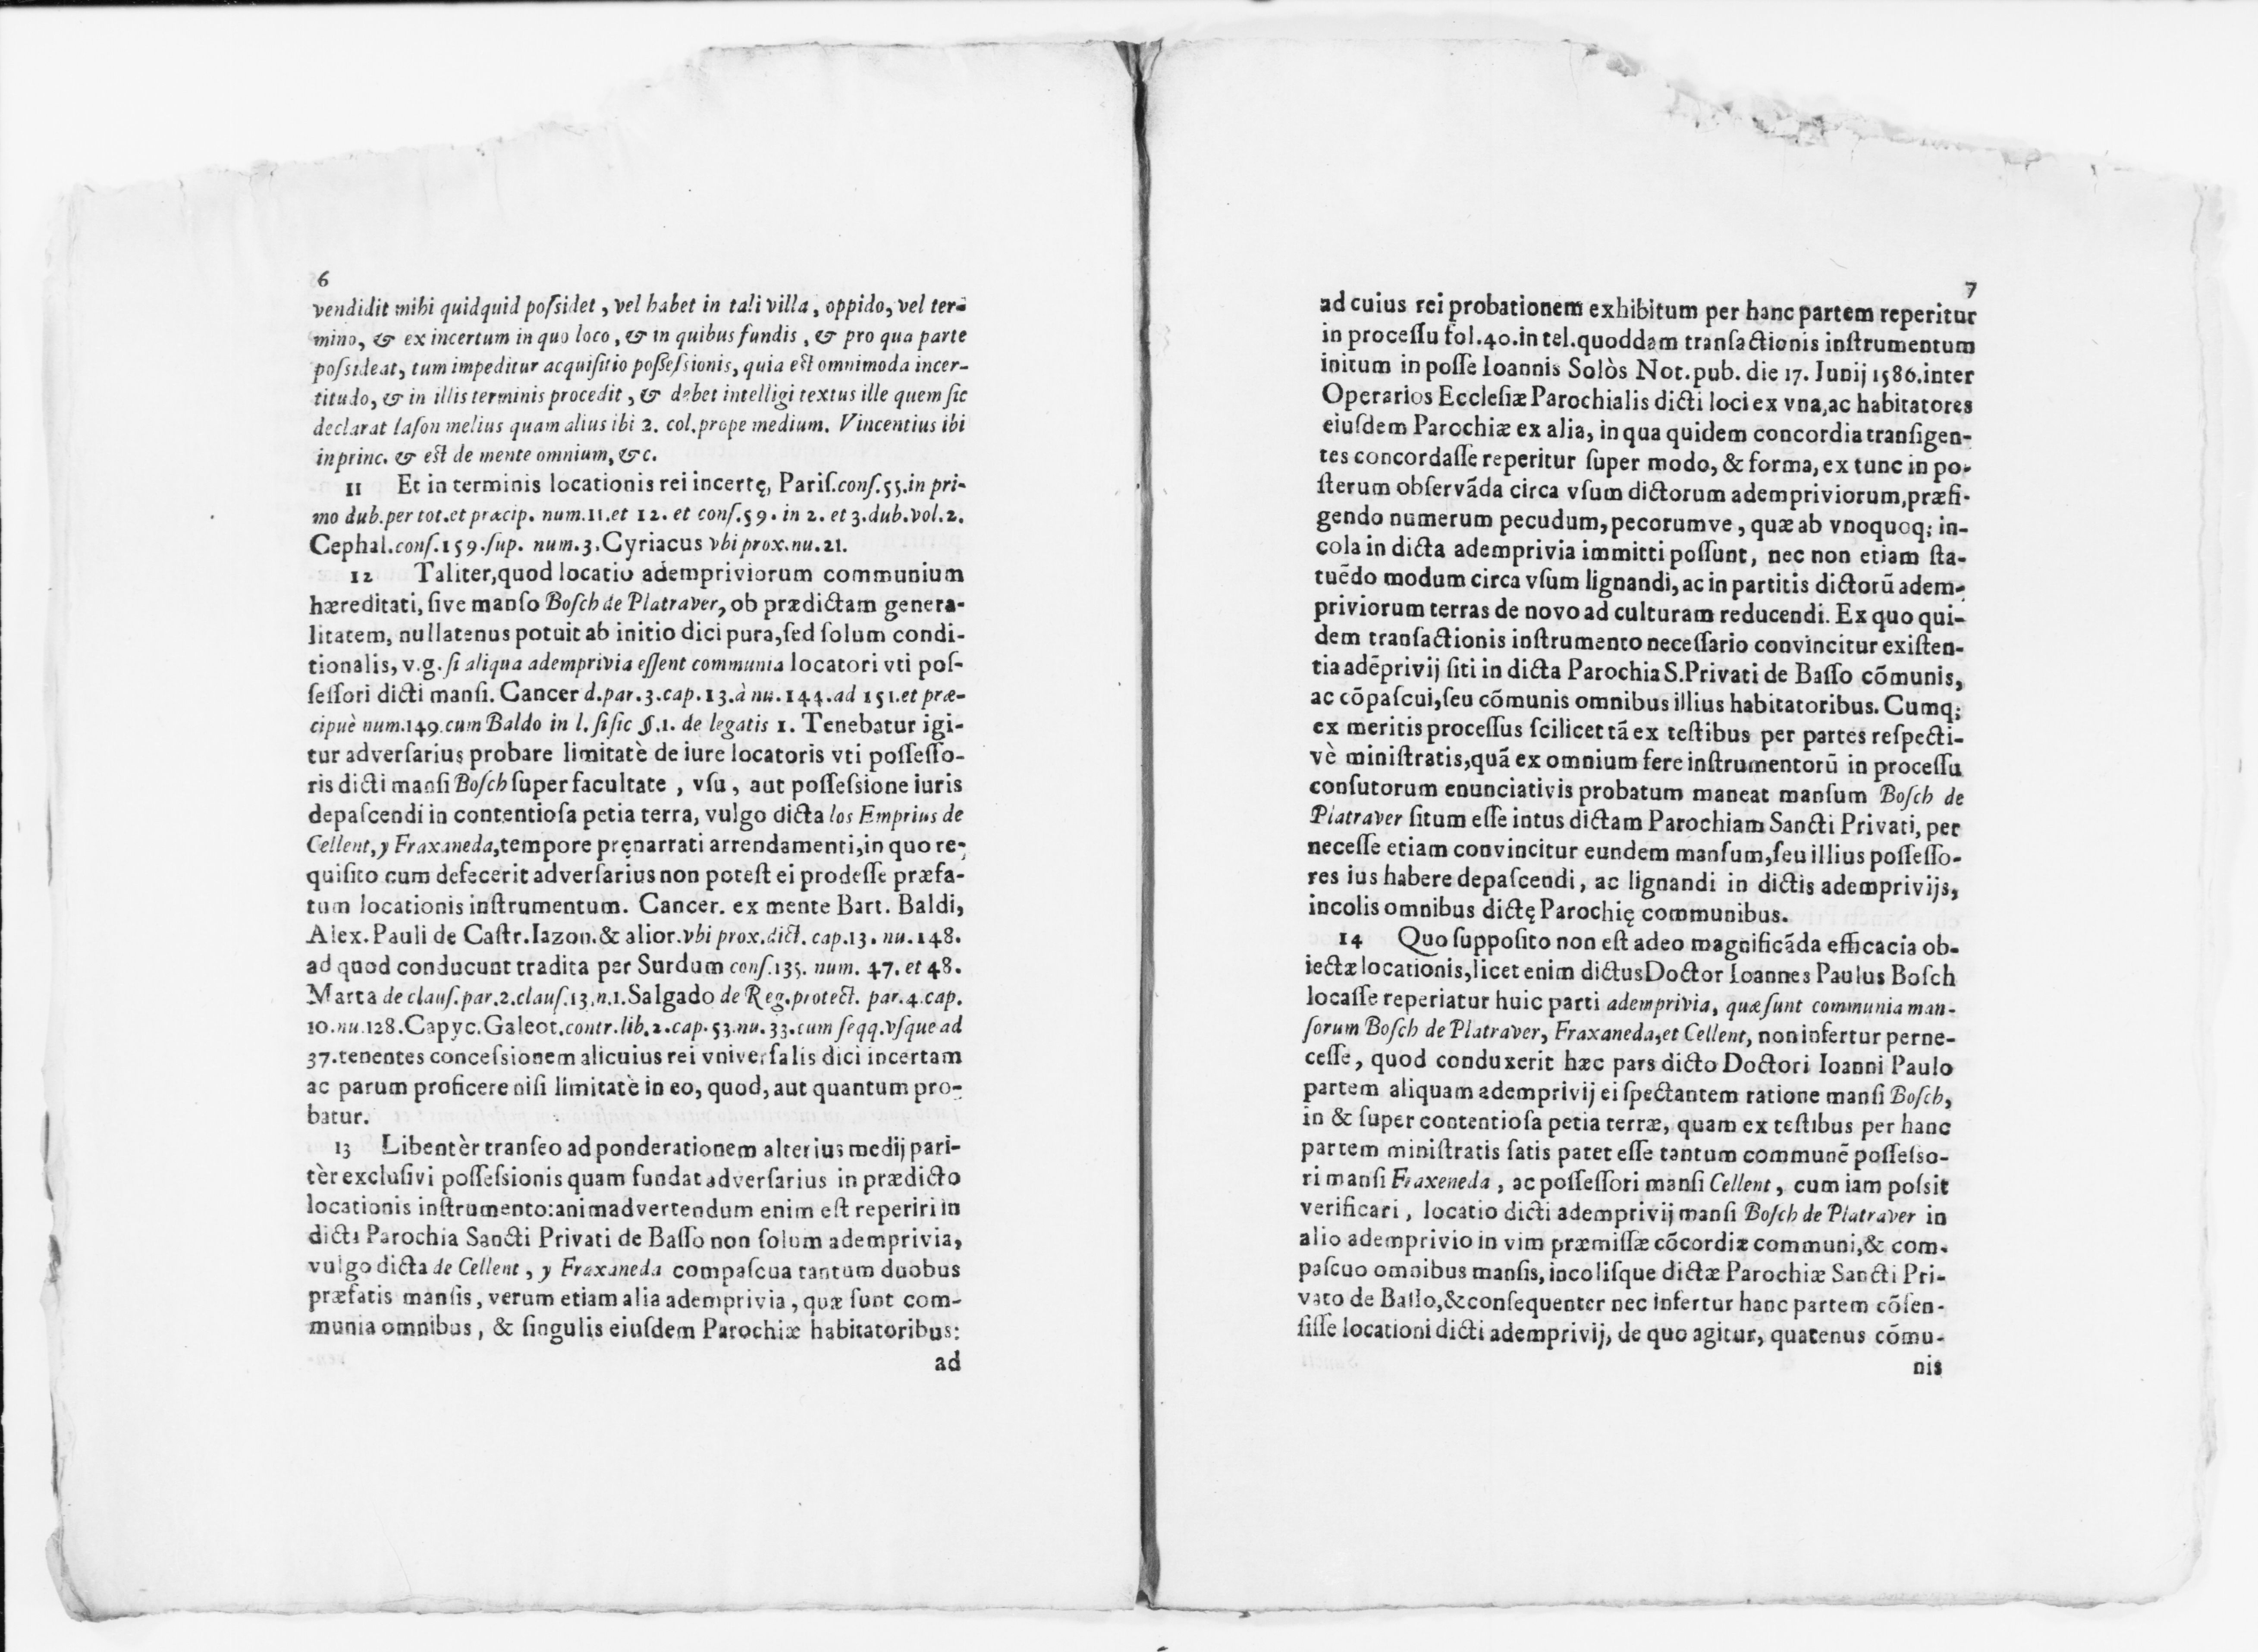 6
vendidit mihi quidquid poſsidet, vel habet in tali villa, oppido, vel ter-
mino, & ex incertum in quo loco, & in quibus fundis, & pro qua parte
poſsideat, tum impeditur acquiſitio poſſeſsionis, quia eſt omnimoda incer-
titudo, & in illis terminis procedit, & debet intelligi textus ille quem ſic
declarat Iaſon melius quam alius ibi 2. col. prope medium. Vincentius ibi
in princ. & eſt de mente omnium, &c.
11 Et in terminis locationis rei incertę, Pariſ. conſ. 55. in pri-
mo dub. per tot. et præcip. num. 11. et 12. et conſ. 59. in 2. et 3. dub. vol. 2.
Cephal. conſ. 159. ſup. num. 3. Cyriacus vbi prox. nu. 21.
12 Taliter, quod locatio adempriviorum communium
hæreditati, ſive manſo Boſch de Platraver, ob prædictam genera-
litatem, nullatenus potuit ab initio dici pura, ſed ſolum condi-
tionalis, v.g. ſi aliqua ademprivia eſſent communia locatori vti poſ-
ſeſſori dicti manſi. Cancer d. par. 3. cap. 13. à nu. 144. ad 151. et præ-
cipuè num. 149. cum Baldo in l. ſi ſic §. 1. de legatis 1. Tenebatur igi-
tur adverſarius probare limitatè de iure locatoris vti poſſeſſo-
ris dicti manſi Boſch ſuper facultate, vſu, aut poſſeſsione iuris
depaſcendi in contentioſa petia terra, vulgo dicta los Emprius de
Cellent, y Fraxaneda, tempore pręnarrati arrendamenti, in quo re-
quiſito cum defecerit adverſarius non poteſt ei prodeſſe præfa-
tum locationis inſtrumentum. Cancer. ex mente Bart. Baldi,
Alex. Pauli de Caſtr. Iazon. & alior. vbi prox. dict. cap. 13. nu. 148.
ad quod conducunt tradita per Surdum conſ. 135. num. 47. et 48.
Marta de clauſ. par. 2. clauſ. 13. n. 1. Salgado de Reg. protect. par. 4. cap.
10. nu. 128. Capyc. Galeot. contr. lib. 2. cap. 53. nu. 33. cum ſeqq. vſque ad
37. tenentes conceſsionem alicuius rei vniverſalis dici incertam
ac parum proficere niſi limitatè in eo, quod, aut quantum pro-
batur.
13 Libentèr tranſeo ad ponderationem alterius medij pari-
tèr excluſivi poſſeſsionis quam fundat adverſarius in prædicto
locationis inſtrumento: animadvertendum enim eſt reperiri in
dicta Parochia Sancti Privati de Baſſo non ſolum ademprivia,
vulgo dicta de Cellent, y Fraxaneda compaſcua tantum duobus
præfatis manſis, verum etiam alia ademprivia, quæ ſunt com-
munia omnibus, & ſingulis eiuſdem Parochiæ habitatoribus:
ad
7
ad cuius rei probationem exhibitum per hanc partem reperitur
in proceſſu fol. 40. in tel. quoddam tranſactionis inſtrumentum
initum in poſſe Ioannis Solòs Not. pub. die 17. Iunij 1586. inter
Operarios Eccleſiæ Parochialis dicti loci ex vna, ac habitatores
eiuſdem Parochiæ ex alia, in qua quidem concordia tranſigen-
tes concordaſſe reperitur ſuper modo, & forma, ex tunc in po-
ſterum obſervãda circa vſum dictorum adempriviorum, præfi-
gendo numerum pecudum, pecorumve, quæ ab vnoquoq; in-
cola in dicta ademprivia immitti poſſunt, nec non etiam ſta-
tuẽdo modum circa vſum lignandi, ac in partitis dictorũ adem-
priviorum terras de novo ad culturam reducendi. Ex quo qui-
dem tranſactionis inſtrumento neceſſario convincitur exiſten-
tia adẽprivij ſiti in dicta Parochia S. Privati de Baſſo cõmunis,
ac cõpaſcui, ſeu cõmunis omnibus illius habitatoribus. Cumq;
ex meritis proceſſus ſcilicet tã ex teſtibus per partes reſpecti-
vè miniſtratis, quã ex omnium fere inſtrumentorũ in proceſſu
conſutorum enunciativis probatum maneat manſum Boſch de
Platraver ſitum eſſe intus dictam Parochiam Sancti Privati, per
neceſſe etiam convincitur eundem manſum, ſeu illius poſſeſſo-
res ius habere depaſcendi, ac lignandi in dictis ademprivijs,
incolis omnibus dictę Parochię communibus.
14 Quo ſuppoſito non eſt adeo magnificãda efficacia ob-
iectæ locationis, licet enim dictus Doctor Ioannes Paulus Boſch
locaſſe reperiatur huic parti ademprivia, quæ ſunt communia man-
ſorum Boſch de Platraver, Fraxaneda, et Cellent, non infertur perne-
ceſſe, quod conduxerit hæc pars dicto Doctori Ioanni Paulo
partem aliquam ademprivij ei ſpectantem ratione manſi Boſch,
in & ſuper contentioſa petia terræ, quam ex teſtibus per hanc
partem miniſtratis ſatis patet eſſe tantum communẽ poſſeſso-
ri manſi Fraxeneda, ac poſſeſſori manſi Cellent, cum iam poſsit
verificari, locatio dicti ademprivij manſi Boſch de Platraver in
alio ademprivio in vim præmiſſæ cõcordiæ communi, & com-
paſcuo omnibus manſis, incoliſque dictæ Parochiæ Sancti Pri-
vato de Baſſo, & conſequenter nec infertur hanc partem cõſen-
ſiſſe locationi dicti ademprivij, de quo agitur, quatenus cõmu-
nis